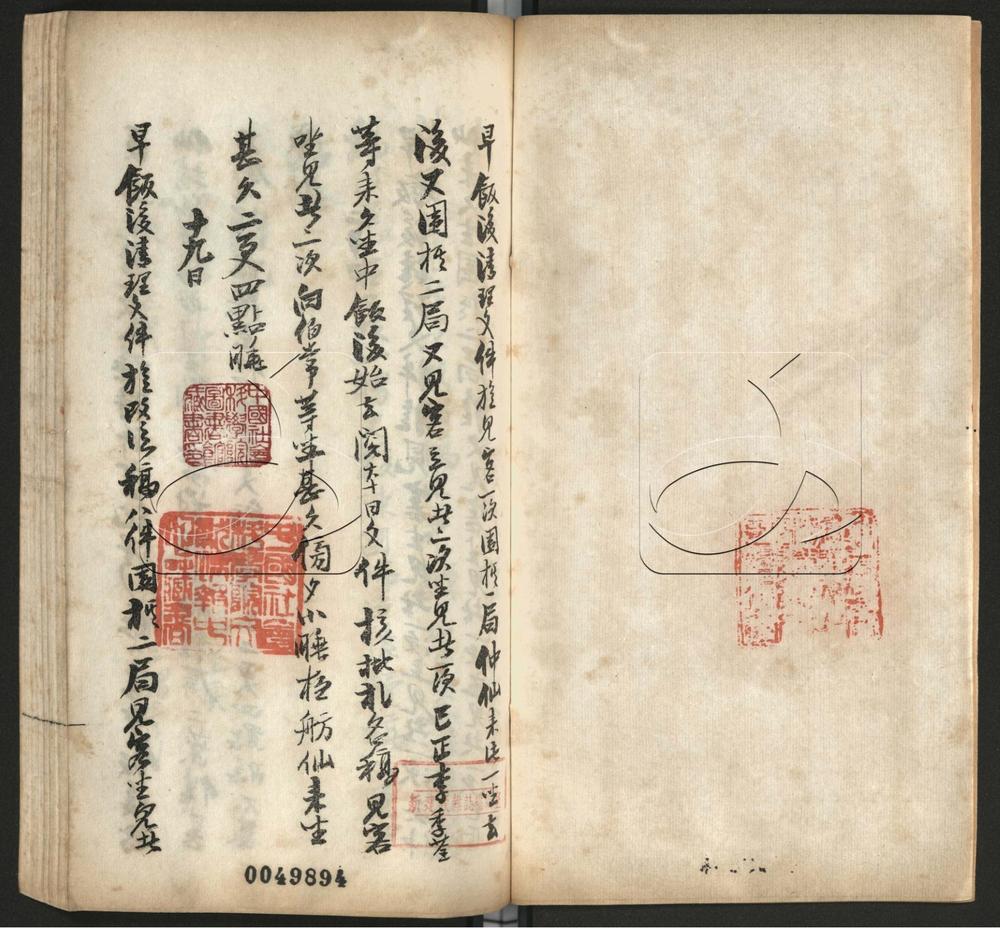 早飯後清理文件旋見客一次圍棋一局仲仙來談一坐去
後又圍棋二局又見客立見者二次坐見者一次巳正李季荃
等來久坐中飯後始去閱本日文件核批札各稿見客
坐見者二次向伯常等坐甚久傍夕小睡夜舫仙來坐
甚久二更四點睡
十九日
早飯後清理文件旋改信稿八件圍棋二局見客坐見者
中國社會科學院圖書館藏書印
0049894